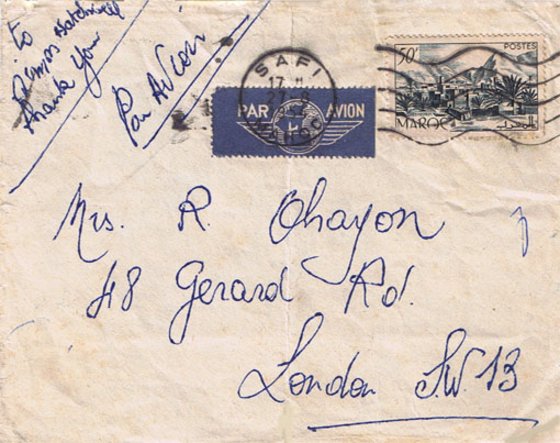 to
thank you
Par Avion
SAFI
17 H
27-8
PAR AVION
50F
POSTES
MAROC
المغرب
Mrs. R. Ohayon
48 Gerard Rd.
London S.W. 13